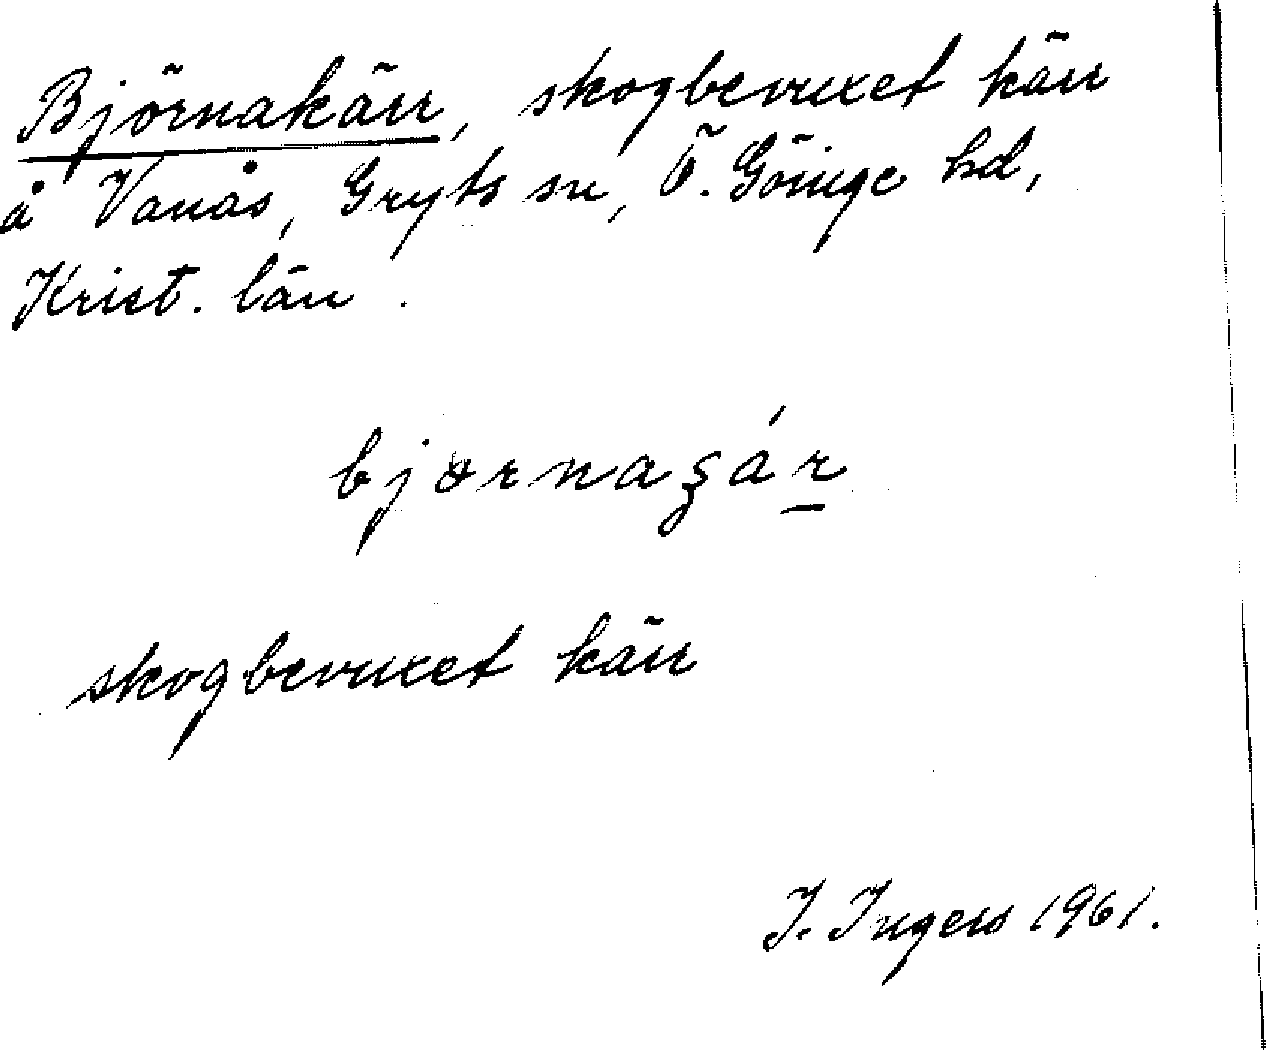 Björnakärr, skogbevuxet kärr
å Vanås, Gryts sn, Ö. Göinge hd,
Krist. län.
bjørnaʂár
skogbevuxet kärr
I. Ingers 1961.